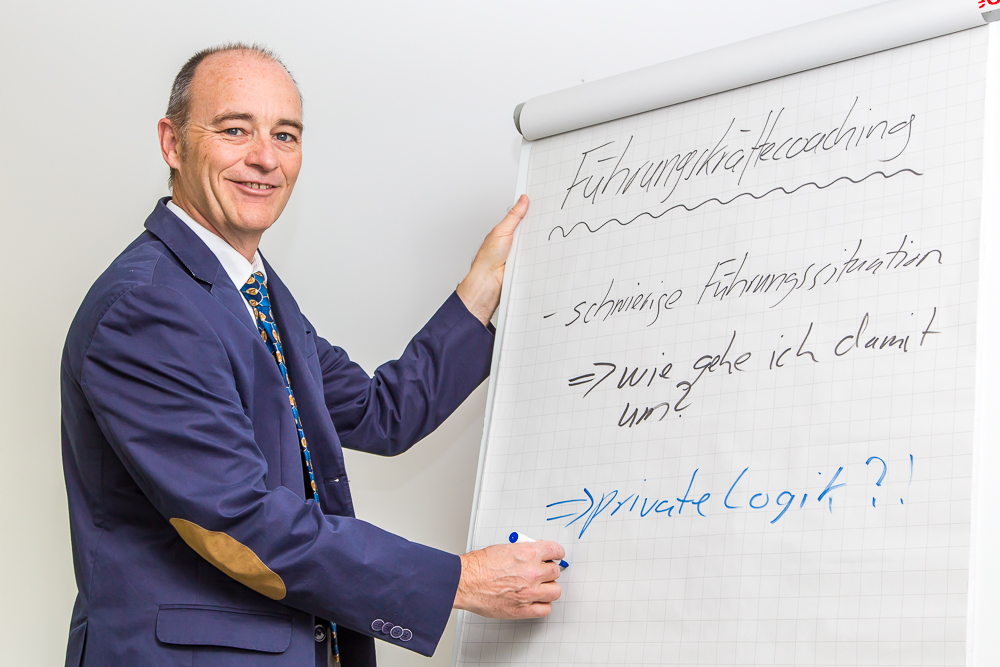 Führungskräftecoaching
- schwierige Führungssituation
=> wie gehe ich damit
um?
=> private Logik?!